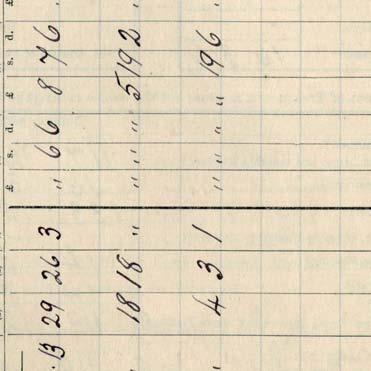 £ s. d. £ s. d. £
13 29 26 3 " 6 6 8 7 6 "
18 18 " " " " 5 19 2 "
" 4 3 1 " " " " 19 6 "